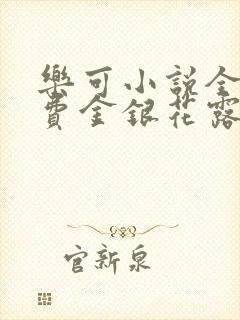 樂可小説全
費金銀花露
官新泉